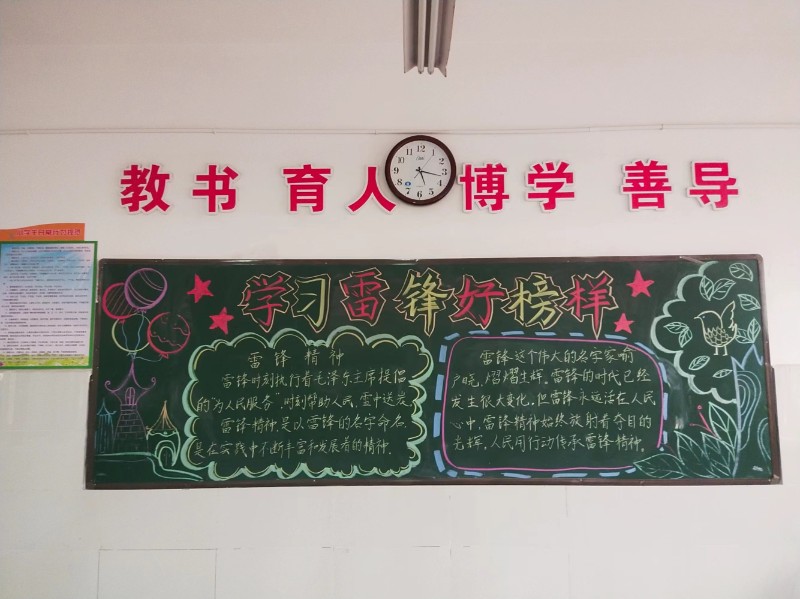 教书 育人 博学 善导
12
1
2
3
4
5
6
7
8
9
10
11
学习雷锋好榜样
雷锋精神
雷锋时刻执行着毛泽东主席提倡
的"为人民服务",时刻帮助人民,雪中送炭
雷锋精神是以雷锋的名字命名,
是在实践中不断丰富和发展着的精神.
雷锋这个伟大的名字家喻
户晓,熠熠生辉.雷锋的时代已经
发生很大变化,但雷锋永远活在人民
心中.雷锋精神始终放射着夺目的
光辉,人民用行动传承雷锋精神.